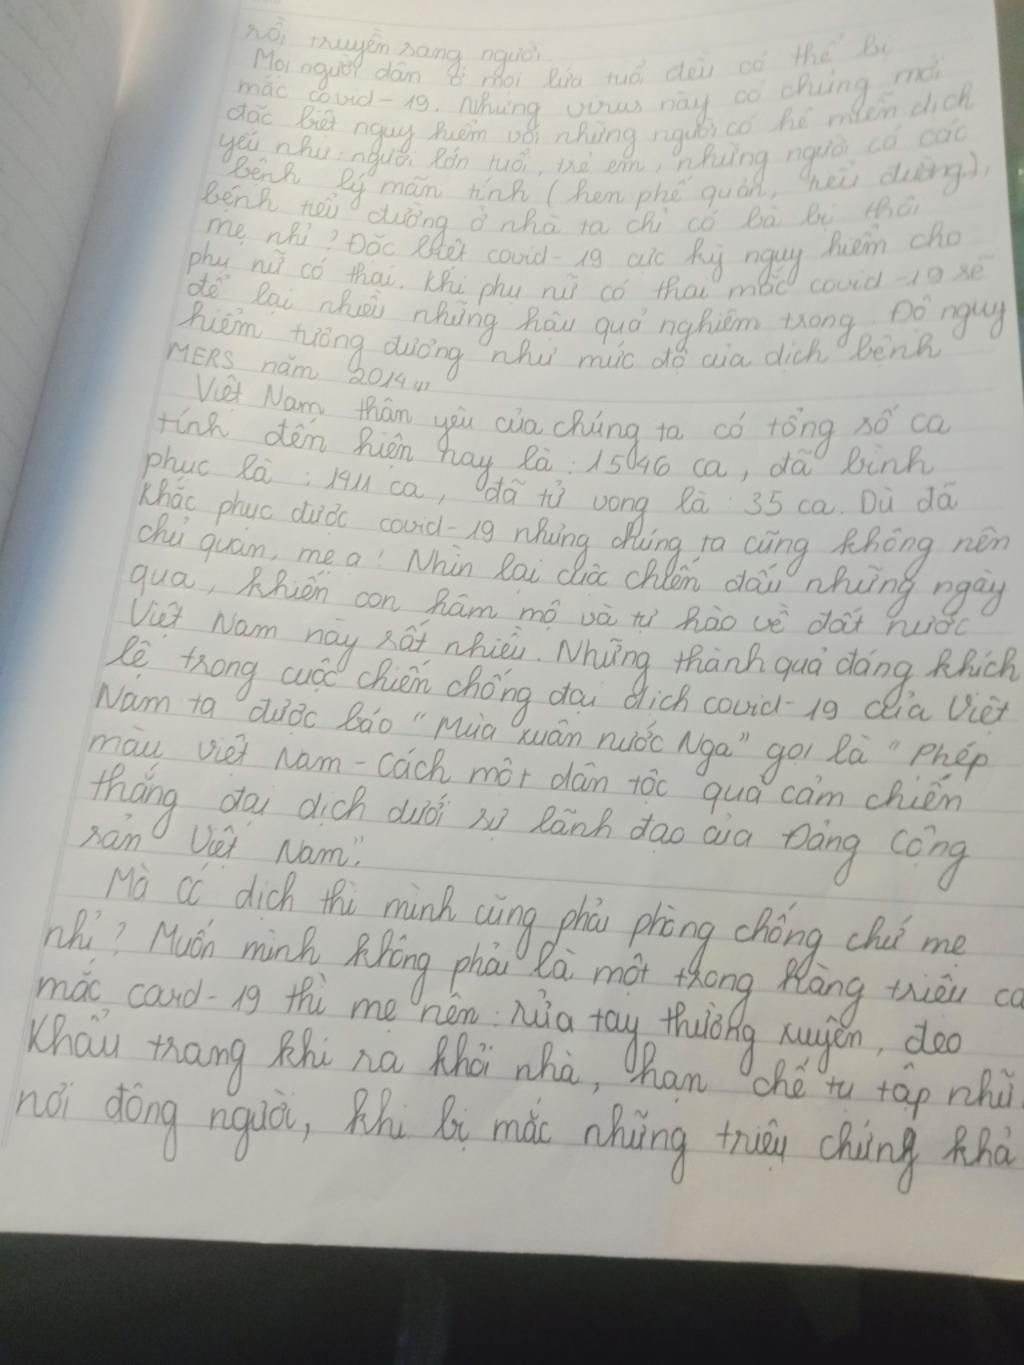 rồi truyền sang người.
Mọi người dân ở mọi lứa tuổi đều có thể bị
mắc covid-19. Nhưng virus này có chủng mới
đặc biệt nguy hiểm với những người có hệ miễn dịch
yếu như: người lớn tuổi, trẻ em, những người có các
bệnh lý mãn tính (hen phế quản, tiểu đường),
bệnh tiểu đường ở nhà ta chỉ có bà bị thôi
mẹ nhỉ? Đặc biệt covid-19 cực kỳ nguy hiểm cho
phụ nữ có thai. Khi phụ nữ có thai mắc covid-19 sẽ
để lại nhiều những hậu quả nghiêm trọng. Độ nguy
hiểm tương đương như mức độ của dịch bệnh
MERS năm 2014
Việt Nam thân yêu của chúng ta có tổng số ca
tính đến hiện nay là: 1546 ca, đã bình
phục là: 1411 ca, đã tử vong là: 35 ca. Dù đã
khắc phục được covid-19 nhưng chúng ta cũng không nên
chủ quan, mẹ ạ! Nhìn lại cuộc chiến đấu những ngày
qua, khiến con hâm mộ và tự hào về đất nước
Việt Nam này rất nhiều. Những thành quả đáng khích
lệ trong cuộc chiến chống đại dịch covid-19 của Việt
Nam ta được báo "Mùa xuân nước Nga" gọi là "Phép
màu Việt Nam - cách một dân tộc quả cảm chiến
thắng đại dịch dưới sự lãnh đạo của Đảng Cộng
sản Việt Nam".
Mà có dịch thì mình cũng phải phòng chống chứ mẹ
nhỉ? Muốn mình không phải là một trong hàng triệu ca
mắc covid-19 thì mẹ nên: rửa tay thường xuyên, đeo
khẩu trang khi ra khỏi nhà, hạn chế tụ tập nhữ
nơi đông người, khi bị mắc những triệu chứng khả